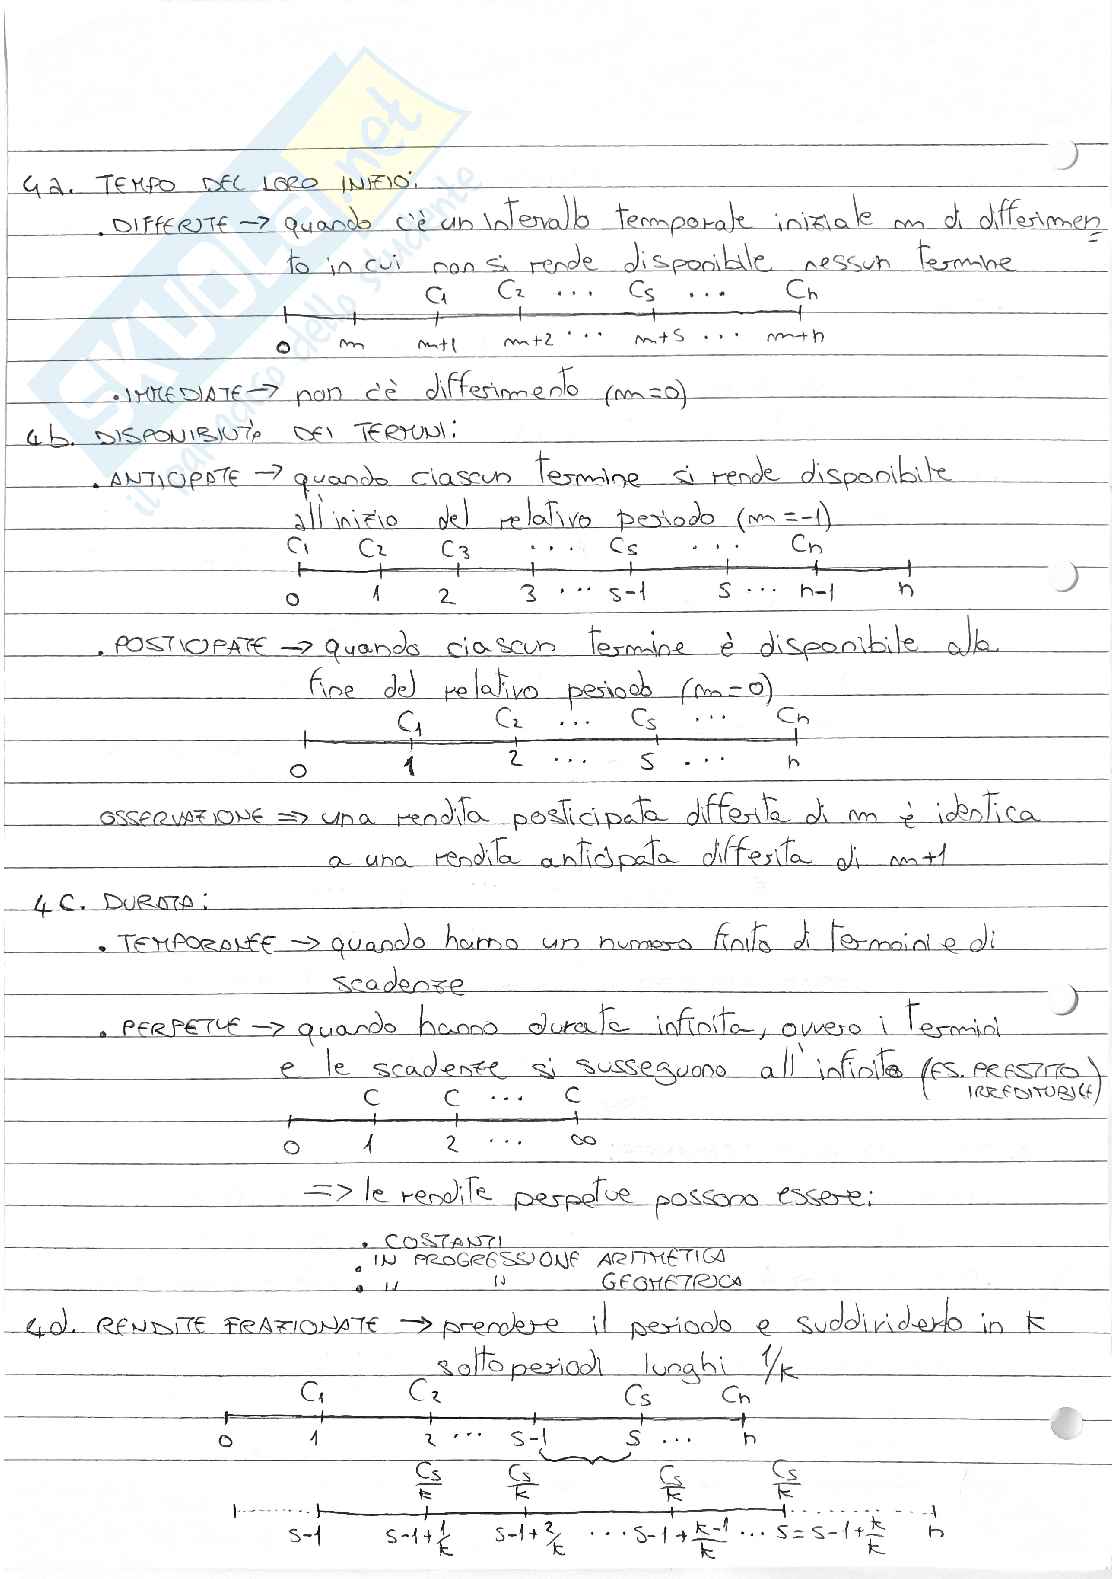 4a. TEMPO DEL LORO INIZIO:
. DIFFERITE → quando c'è un intervallo temporale iniziale m di differimen
to in cui non si rende disponibile nessun termine
C1 C2 ... Cs ... Cn
0 m m+1 m+2 ... m+s ... m+n
. IMMEDIATE → non c'è differimento (m=0)
4b. DISPONIBILITÀ DEI TERMINI:
. ANTICIPATE → quando ciascun termine si rende disponibile
all'inizio del relativo periodo (m=-1)
C1 C2 C3 ... Cs ... Cn
0 1 2 3 ... s-1 s ... n-1 n
. POSTICIPATE → quando ciascun termine è disponibile alla
fine del relativo periodo (m=0)
C1 C2 ... Cs ... Cn
0 1 2 ... s ... n
OSSERVAZIONE => una rendita posticipata differita di m è identica
a una rendita anticipata differita di m+1
4c. DURATA:
. TEMPORANEE → quando hanno un numero finito di termini e di
scadenze
. PERPETUE → quando hanno durata infinita, ovvero i termini
e le scadenze si susseguono all'infinito (ES. PRESTITO
IRREDIMIBILE)
C C ... C
0 1 2 ... ∞
=> le rendite perpetue possono essere:
. COSTANTI
. IN PROGRESSIONE ARITMETICA
. " " GEOMETRICA
4d. RENDITE FRAZIONATE → prendere il periodo e suddividerlo in k
sottoperiodi lunghi 1/k
C1 C2 Cs Cn
0 1 2 ... s-1 s ... n
Cs/k Cs/k Cs/k Cs/k
s-1 s-1+1/k s-1+2/k ... s-1+k-1/k ... s=s-1+k/k n
SKUOLA.net
il paradiso dello studente